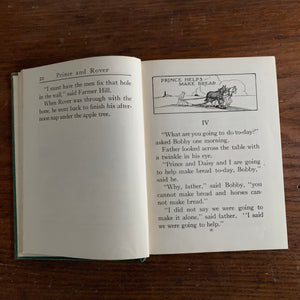 22 Prince and Rover
"I must have the men fix that hole
in the wall," said Farmer Hill.
When Rover was through with the
bone, he went back to finish his after-
noon nap under the apple tree.
PRINCE HELPS
MAKE BREAD
IV
"What are you going to do to-day?"
asked Bobby one morning.
Father looked across the table with
a twinkle in his eye.
"Prince and Daisy and I are going
to help make bread to-day, Bobby,"
said he.
"Why, father," said Bobby, "you
cannot make bread and horses can-
not make bread."
"I did not say we were going to
make it alone," said father. "I said
we were going to help."